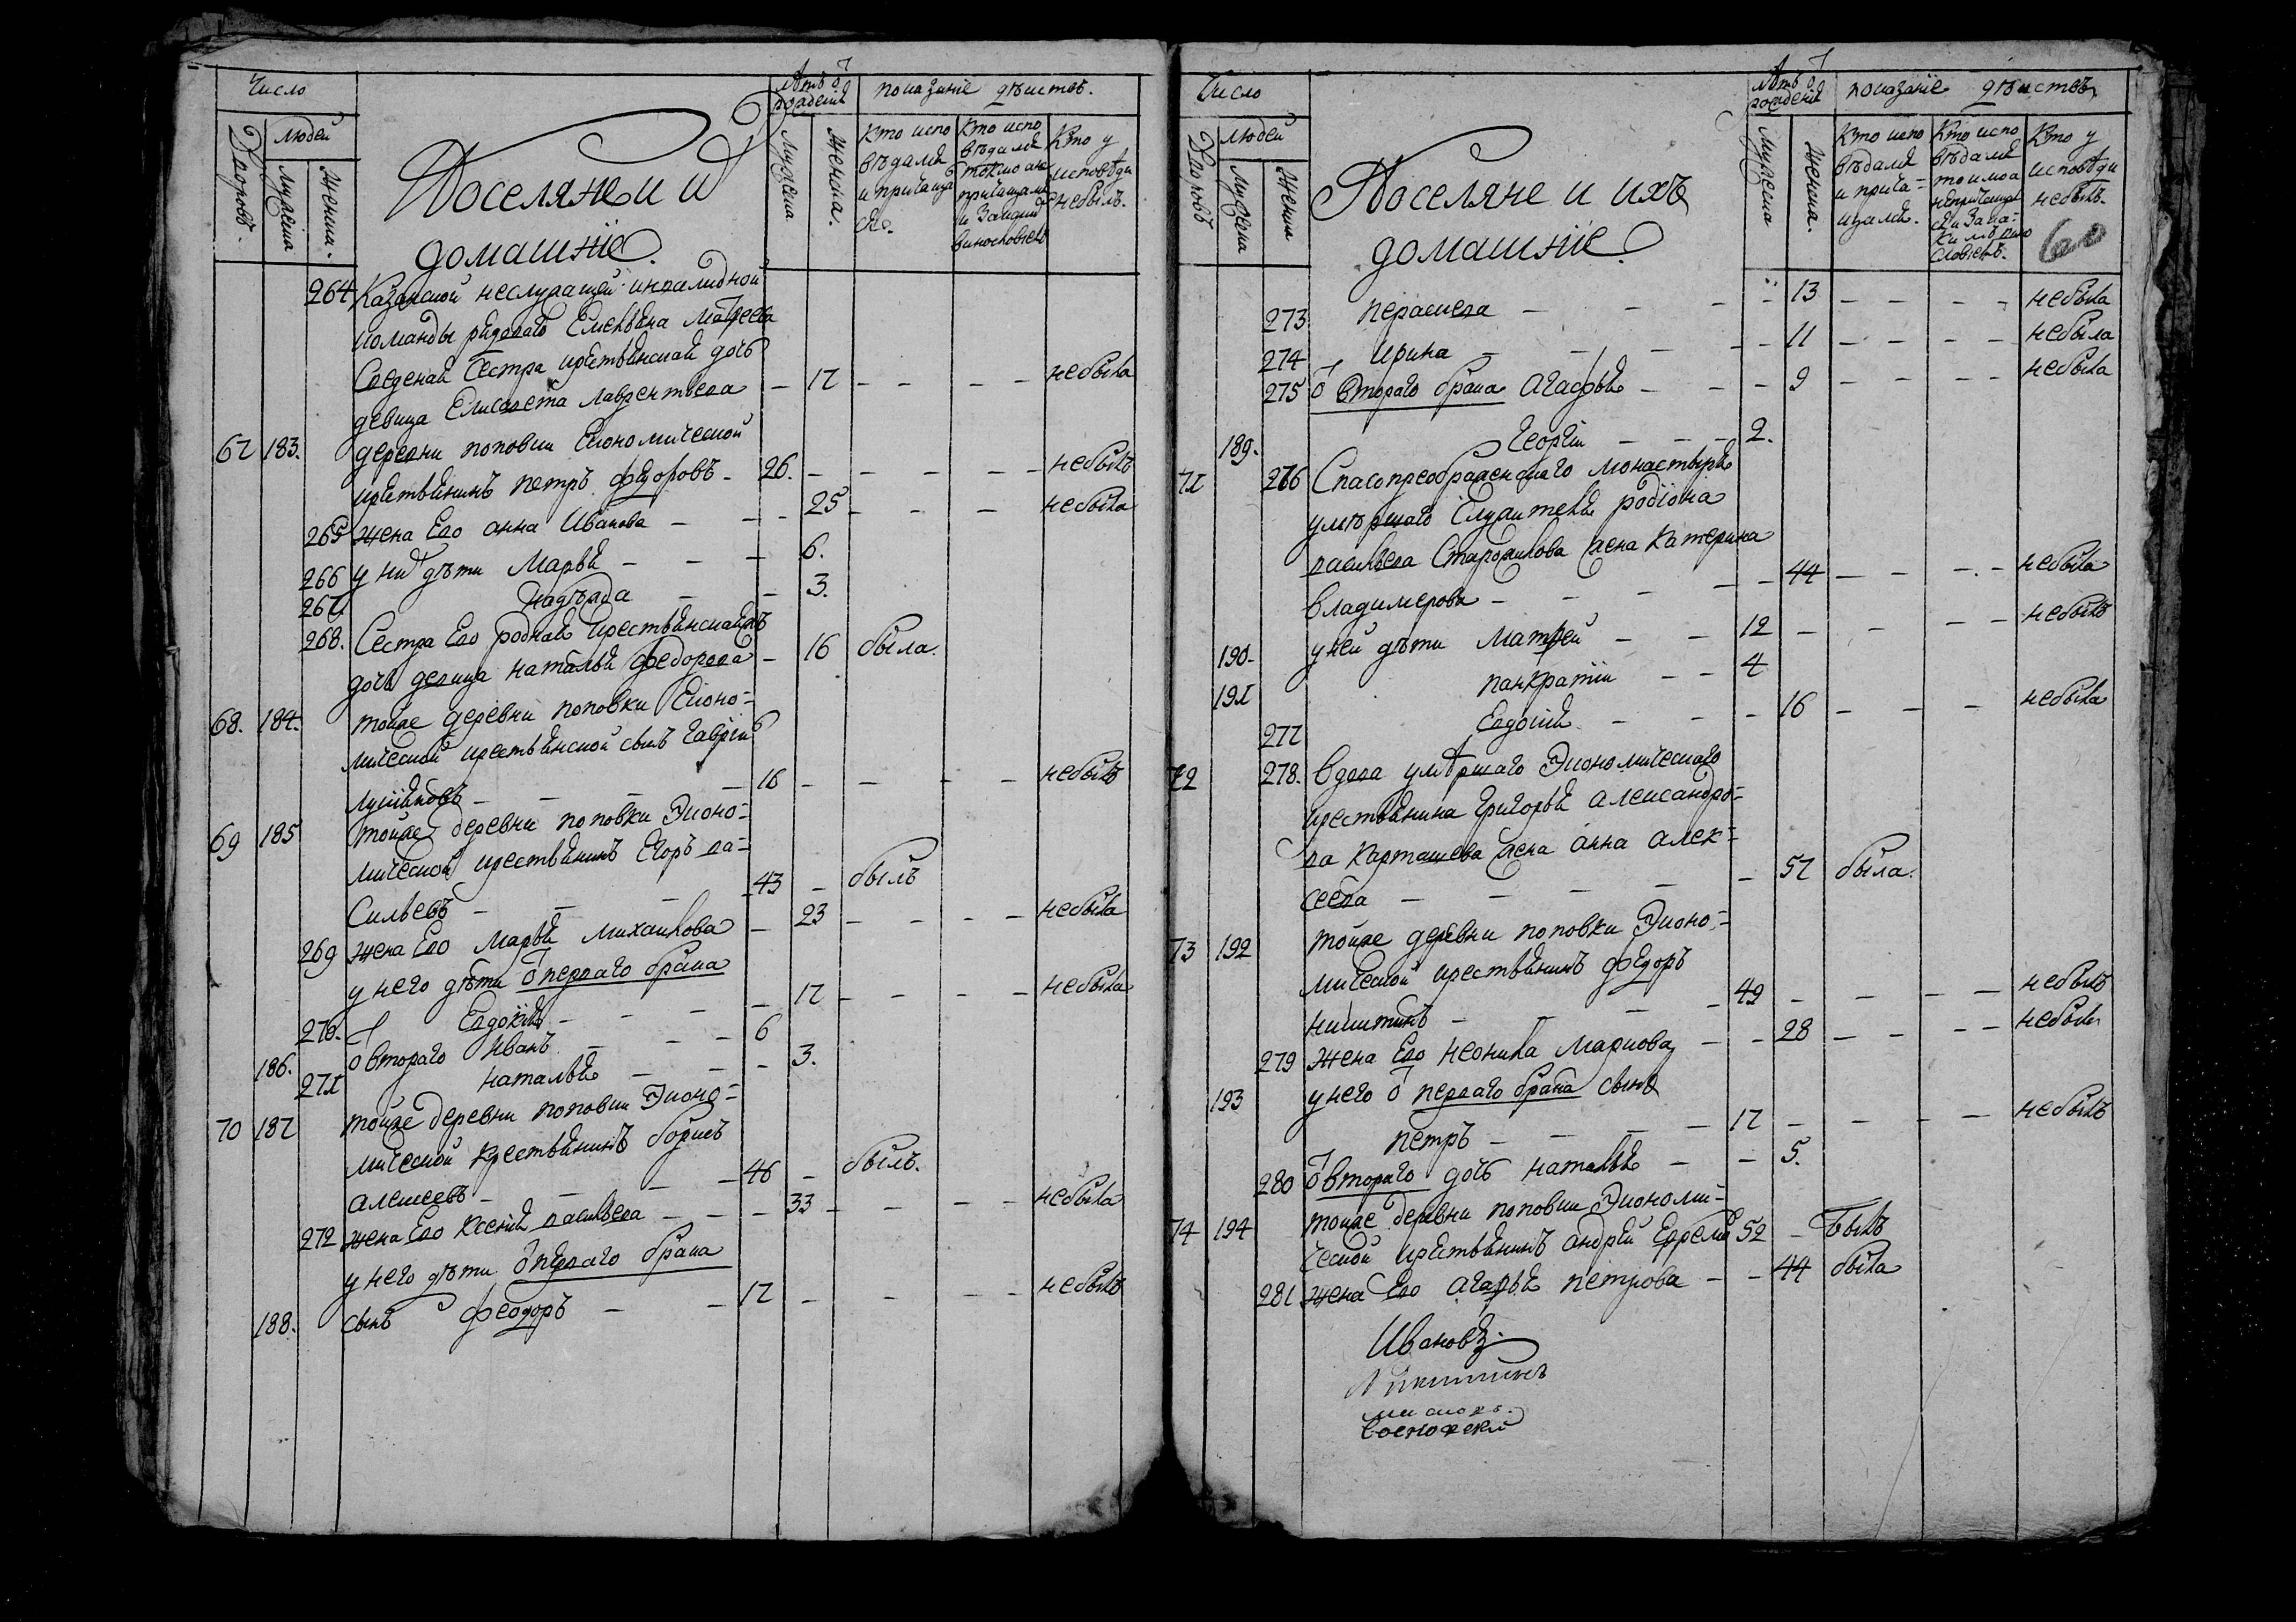 Число
Лѣтъ ѿ рожденія
показаніе дѣйствъ.
Дворовъ.
людей
Мужеска
Женска.
Поселяне и ихъ
домашніе.
Мужеска
Женска.
Кто испо
вѣдался
и причаща
лся.
Кто испо
вѣдался
токмо а не
причащался
и за какимъ
винословіемъ
Кто у
исповѣди
не былъ.
264 Казанской неслужащей инвалидной
команды рядоваго Емельяна Матвеева
Сведеная Сестра крестьянская дочь
девица Елисавета Лаврентьева – 17 – – – – небыла
67 183. деревни поповки Економической
крестьянинъ петръ федоровъ – 26. – – – – небылъ
265 жена Его анна Иванова – – – 25 – – – небыла
266 у нихъ дѣти Марья – – – 6.
267 Надѣжда – – 3.
268. Сестра Его родная крестьянская
дочь девица наталья федорова – 16 была.
68. 184. тойже деревни поповки Еконо-
мической крестьянской сынъ Гаврiилъ
– – – 16 – – – – небылъ
69 185 тойже деревни поповки Эконо-
мической крестьянинъ Егоръ ва-
сильевъ – – – 43 – былъ
269 жена Его Марья Михаилова – 23 – – – – небыла
у него дѣти ѿ перваго брака
270. Евдокiя – – – – 17 – – – – небыла
186. ѿ втораго Иванъ – – – 6
271 наталья – – – 3.
70 187 тойже деревни поповки Эконо-
мической крестьянинъ борисъ
алексеевъ – – – – 46 – былъ.
272 жена Его Ксенiя васильева – – – 33 – – – – небыла
у него дѣти ѿ перваго брака
188. сынъ феодоръ – – 17 – – – – небылъ
Число
Лѣтъ ѿ рожденія
показаніе дѣйствъ
Дворовъ
людей
Мужеска
Женска
Поселяне и ихъ
домашніе.
Мужеска
Женска.
Кто испо
вѣдался
и прича-
щался.
Кто испо
вѣдался
токмо а
непричащал
ся и за ка-
кимъ вино
словіемъ.
Кто у
исповѣди
небылъ.
60
273 Парасковья – – – – 13 – – – – небыла
274 Ирина – – – – – 11 – – – – небыла
275 ѿ втораго брака Агафья – – – 9 – – – – небыла
189. Георгiй – – – 2.
71 276 Спасопреображенскаго монастыря
умѣршаго Служителя родiона
васильева Старожилова жена Катерина
владимерова – – – – – 44 – – – – небыла
190. у ней дѣти Матвей – – 12 – – – – небылъ
191 панкратiй – – 4
277 Евдокiя – – – 16 – – – небыла
72 278. вдова умѣршаго Экономическаго
крестьянина Григорья александро-
ва Карташева жена анна алек-
сеева – – – – 57 была.
73 192 тойже деревни поповки Эконо-
мической крестьянинъ федоръ
никитинъ – – – – 49 – – – – небылъ
279 жена Его неонила Маркова – – 28 – – – – небыла
193 у него ѿ перваго брака сынъ
петръ – – – – 17 – – – – небылъ
280 ѿ втораго дочь наталья – – 5.
74 194 тойже деревни поповки Экономи-
ческой крестьянинъ андрей Ефремовъ 52 – былъ
281 жена Его агафья петрова – – 44 была
Ивановъ.
Никитинъ